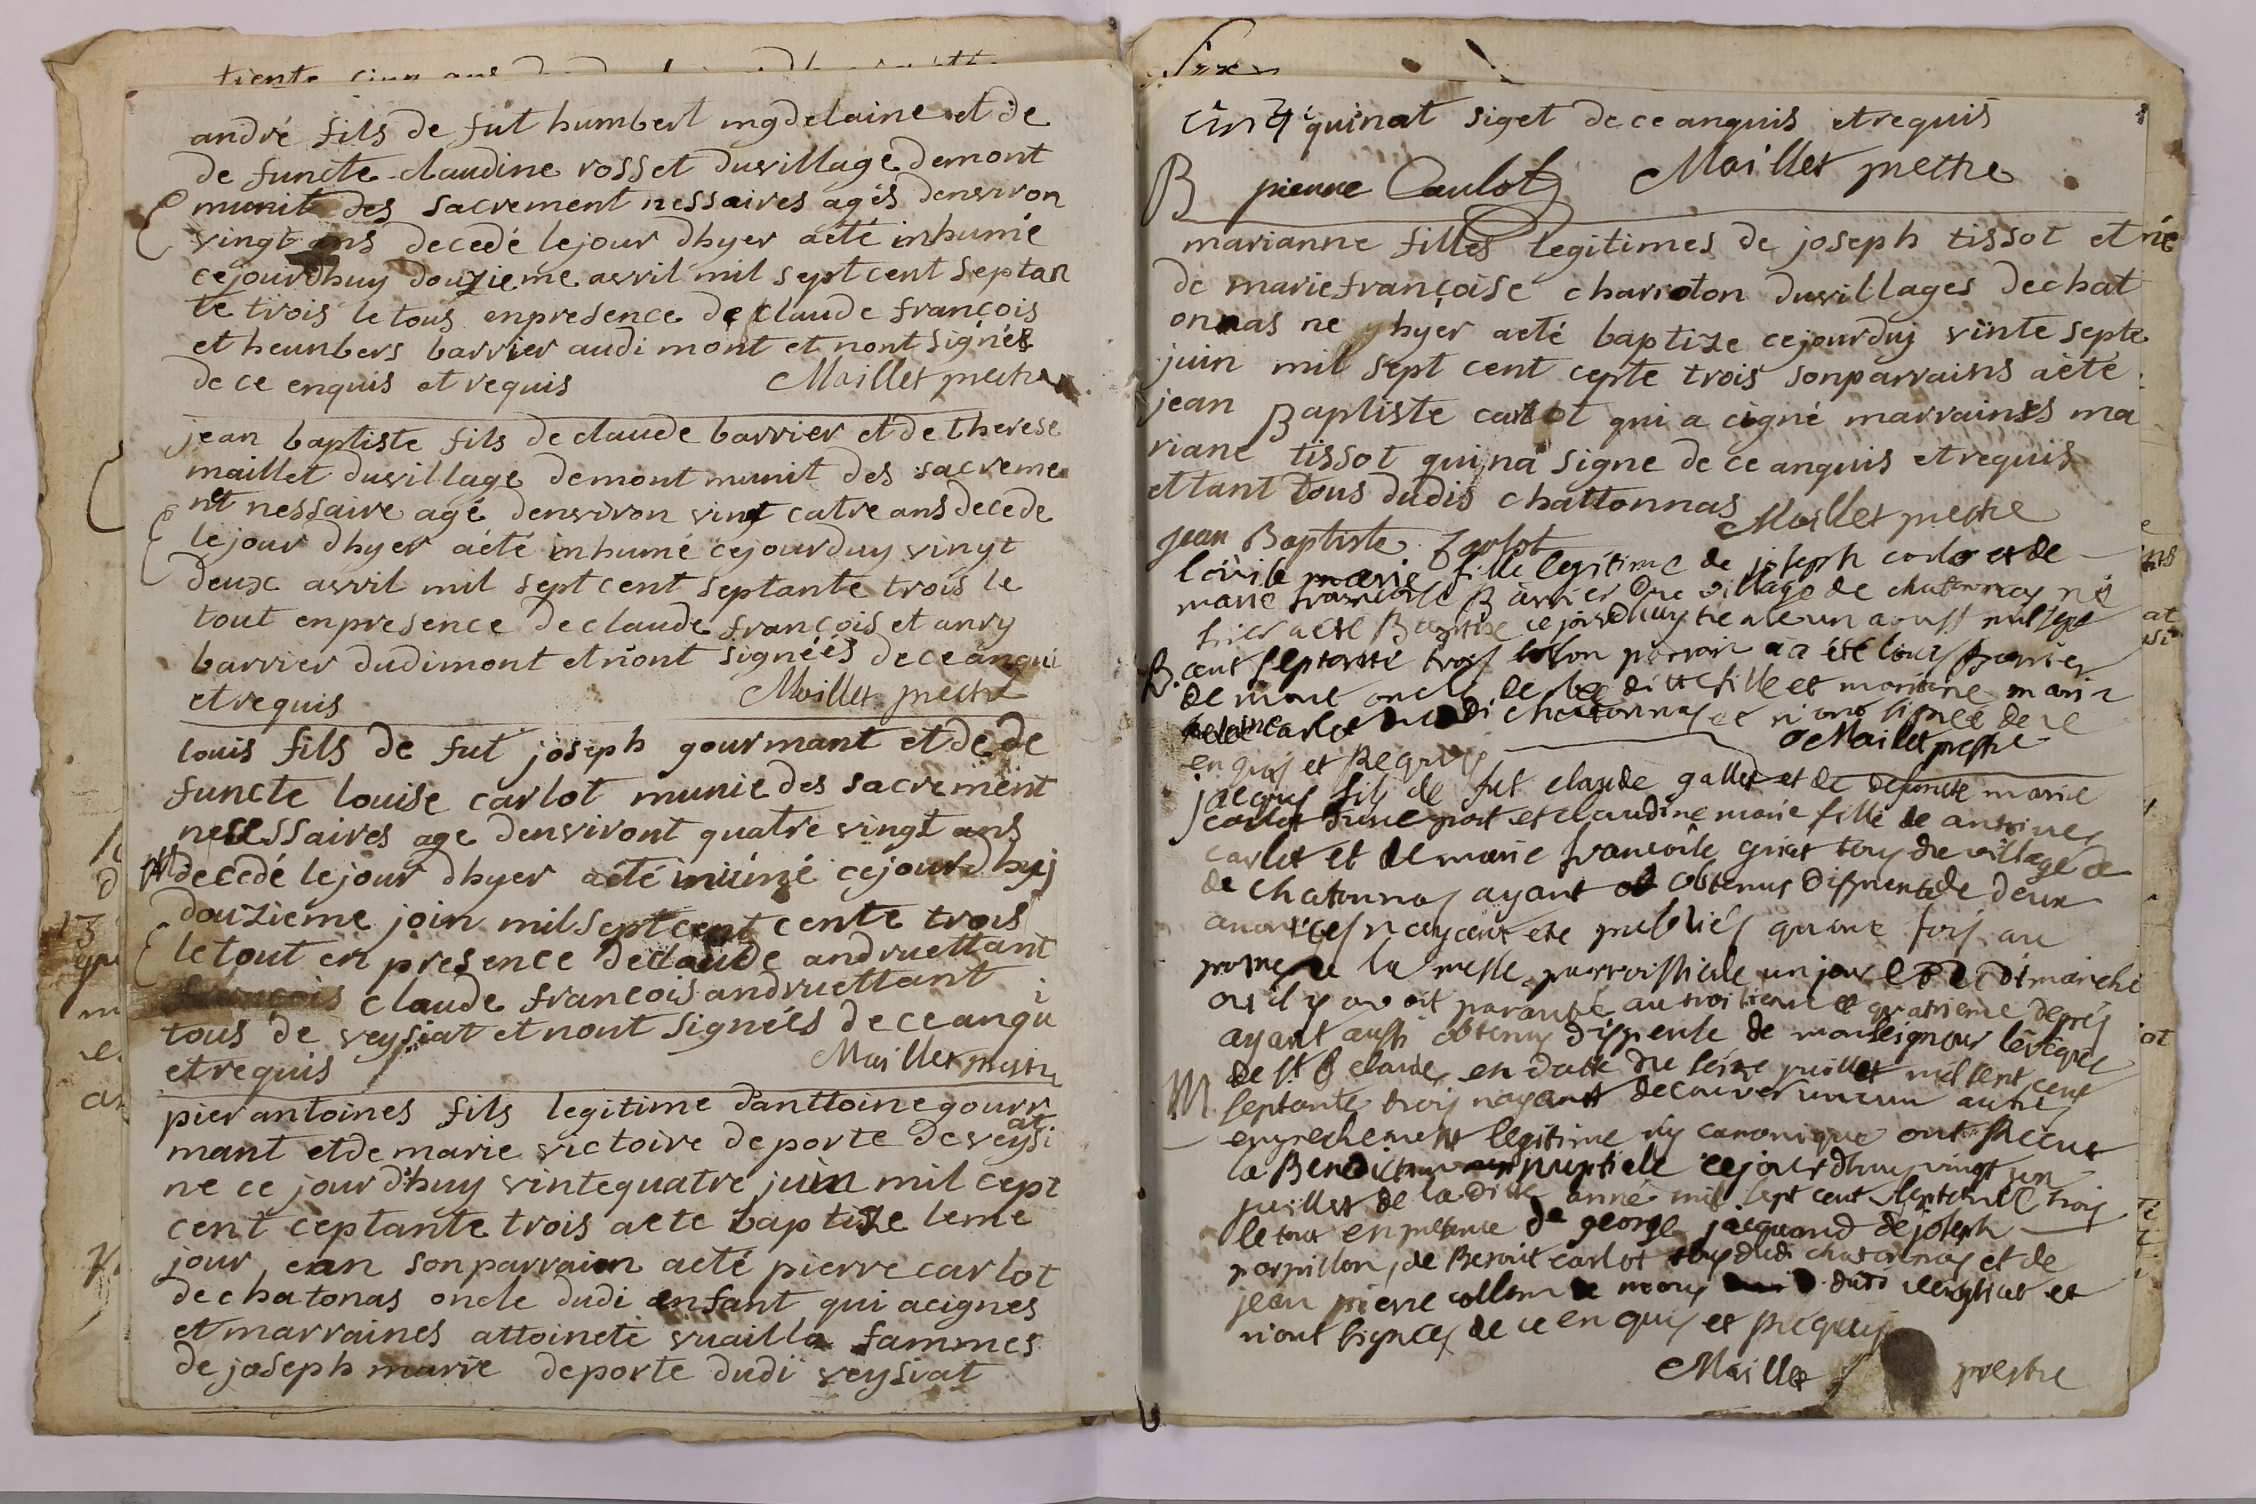 andré fils de fut humbert mgdelaine et de
de functe claudine rosset du village demont
munit des sacrement nessaires agés denviron
vingt ans decedé le jour dhyer aeté inhumé
cejourdhuy douzieme avril mil sept cent septan
te trois le tous enpresence de claude françois
et heunbers barrier audi mont et nont signés
de ce enquis et requis Maillet prestre
jean baptiste fils de claude barrier et de therese
maillet duvillage demont munit des sacreme
nt nessaire agé denviron vint catre ans decede
lejour dhyer aété inhumé cejourduy vingt
deux avril mil sept cent septante trois le
tout enpresence de claude françois et anry
barrier dudimont et nont signéés de ce anqui
et requis Maillet prestre
louis fils de fut joseph gourmant et de de
functe louise carlot munie des sacrement
necessaires age denviront quatre vingt ans
decedé lejour dhyer aété iniúmé cejourdhyj
douzieme join mil sept cent cente trois
le tout en presence de claude andruettant
françois claude francois andruettant
tous de veysiat et nont signéés de ce anqu
i
et requis Maillet prestre
pier antoines fils legitime danttoine gourr
mant et de marie victoire de porte de veysi
at
ne ce jour d'huy vintequatre juin mil cept
cent ceptante trois aete baptize leme
jour, ean son parraien aeté pierre carlot
de chatonas oncle dudi enfant qui acignes
et marraines attoinete vuailla fammes
de joseph marie deporte dudi veysiat
quinat siget de ce anquis et requis
B pierre Caulot Maillet prestre
marianne filles legitimes de joseph tissot et né
de marie françoise charroton duvillages de chat
onnas ne yhyer aeté baptize cejourduj vinte septe
juin mil sept cent cepte trois sonparrains aété
jean Baptiste carlot qui a cigné marraines ma
riane tissot quina signe de ce anquis et requis
ettant tous dudis chattonnas Maillet prestre
jean Baptiste Carlot
marie fille legitime de joseph carlo et de
marie francoise Barrier du village de chatonnay né
hier a esté Baptise ce jourdhuy trente un aoust mil sept
B. cent septante trois son parrain a été louis Barrier
de mont oncle de la ditte fille et marraine marie
carlot dudi chatonnas et n'ont signés de ce
en quis et Requis Maillet prestre
jacques fils de fut claude gallet et de defuncte marie
carlot d'une part et claudine marie fille de antoines
carlot et de marie francoise guiat tous du village de
de chatonnas ayant obtenus dispense de deux
annonces n'ayant ete publiés qu'une fois au
prosne de la messe parroissiale un jour de dimanche
ou il y avoit paranté au troisieme et quatrieme degrés
ayant aussi obtenus dispense de monseigneur l'evêque
de st Claude en datte du seize juillet mil sept cent
M. septante trois n'ayant decouver aucun autre
enpechement legitime ny canonique ont Recut
la Benediction nuptiale cejourdhuy vingt un
juillet de la ditte anné mil sept cent septante trois
le tout en presence de george jacquand de joseph
porpillon, de Benoit carlot tous dudi chatonnas et de
jean pierre collom de mony dudi veysiat et
n'ont signés de ce en quis et Requis
Maillet prestre